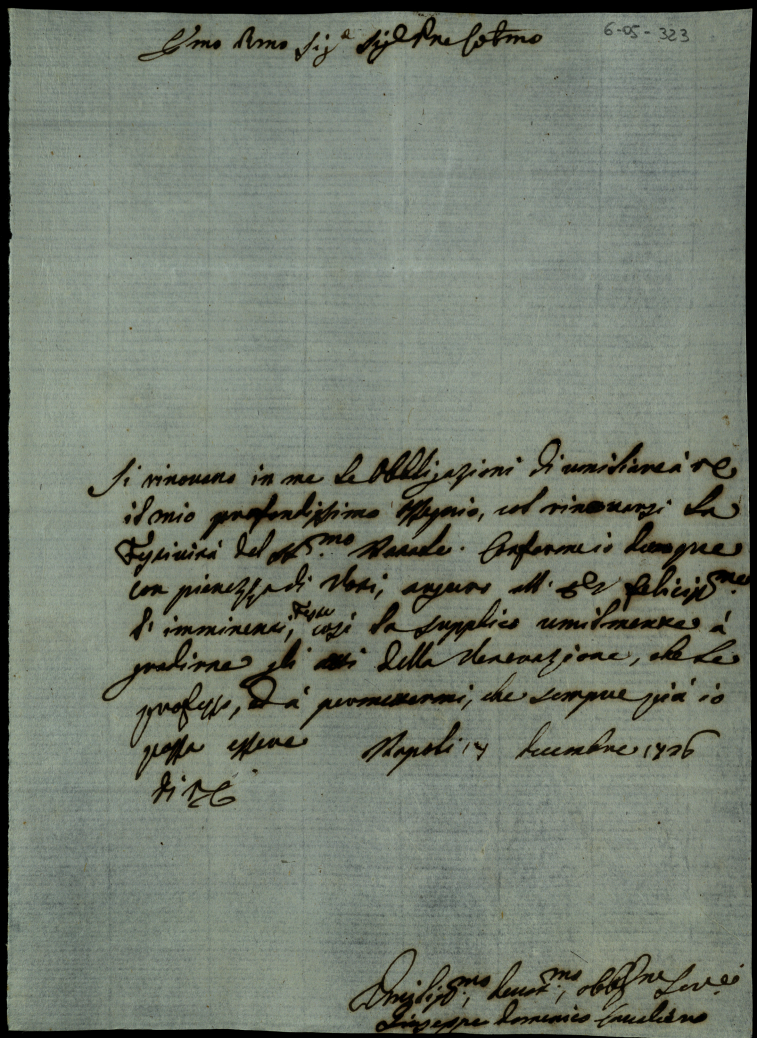 6-05-323
Emo Rmo Sig.r Sig.r Pne Colmo
Si rinovano in me le obbligazioni di umiliare à VE
il mio profondissimo ossequio, col rinovarsi la
Festività del SS.mo Natale. Conforme io dunque
con pienezza di Voti, auguro all' EV felicissme
l'imminenti, Feste così la supplico umilmente à
gradirne gli atti della Venerazione, che Le
professo, ed à permettermi, che sempre più io
possa essere Napoli 14 decembre 1726
di VE
Umiliss.mo, devot.mo, obb
Giuseppe Domenico